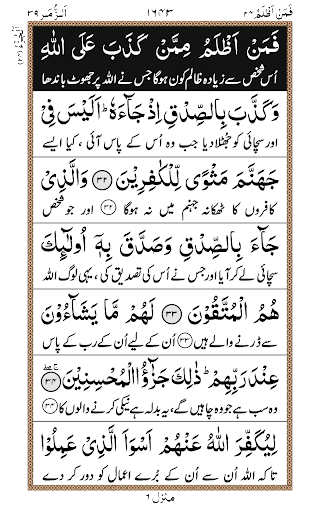 فَمَنْ اَظْلَمُ ۲۴ ۱۶۴۳ اَلزُّمَر ۳۹
اَلْجُزْءُ (۲۴)
فَمَنْ اَظْلَمُ مِمَّنْ كَذَبَ عَلَى اللّٰهِ
اُس شخص سے زیادہ ظالم کون ہوگا جس نے اللہ پر جھوٹ باندھا
وَكَذَّبَ بِالصِّدْقِ اِذْ جَآءَهٗ ؕ اَلَيْسَ فِيْ
اور سچائی کو جھٹلا دیا جب وہ اُس کے پاس آئی ، کیا ایسے
جَهَنَّمَ مَثْوًى لِّلْكٰفِرِيْنَ ﴿۳۲﴾ وَالَّذِيْ
کافروں کا ٹھکانہ جہنم میں نہ ہوگا ﴿۳۲﴾ اور جو شخص
جَآءَ بِالصِّدْقِ وَصَدَّقَ بِهٖۤ اُولٰٓئِكَ
سچائی لے کر آیا اور جس نے اُس کی تصدیق کی ، یہی لوگ اللہ
هُمُ الْمُتَّقُوْنَ ﴿۳۳﴾ لَهُمْ مَّا يَشَآءُوْنَ
سے ڈرنے والے ہیں ﴿۳۳﴾ اُن کے لیے اُن کے رب کے پاس
عِنْدَ رَبِّهِمْ ؕ ذٰلِكَ جَزٰٓؤُا الْمُحْسِنِيْنَ ﴿۳۴﴾
وہ سب ہے جو وہ چاہیں گے، یہ بدلہ ہے نیکی کرنے والوں کا ﴿۳۴﴾
لِيُكَفِّرَ اللّٰهُ عَنْهُمْ اَسْوَاَ الَّذِيْ عَمِلُوْا
تا کہ اللہ اُن سے اُن کے بُرے اعمال کو دور کر دے
منزل ۶